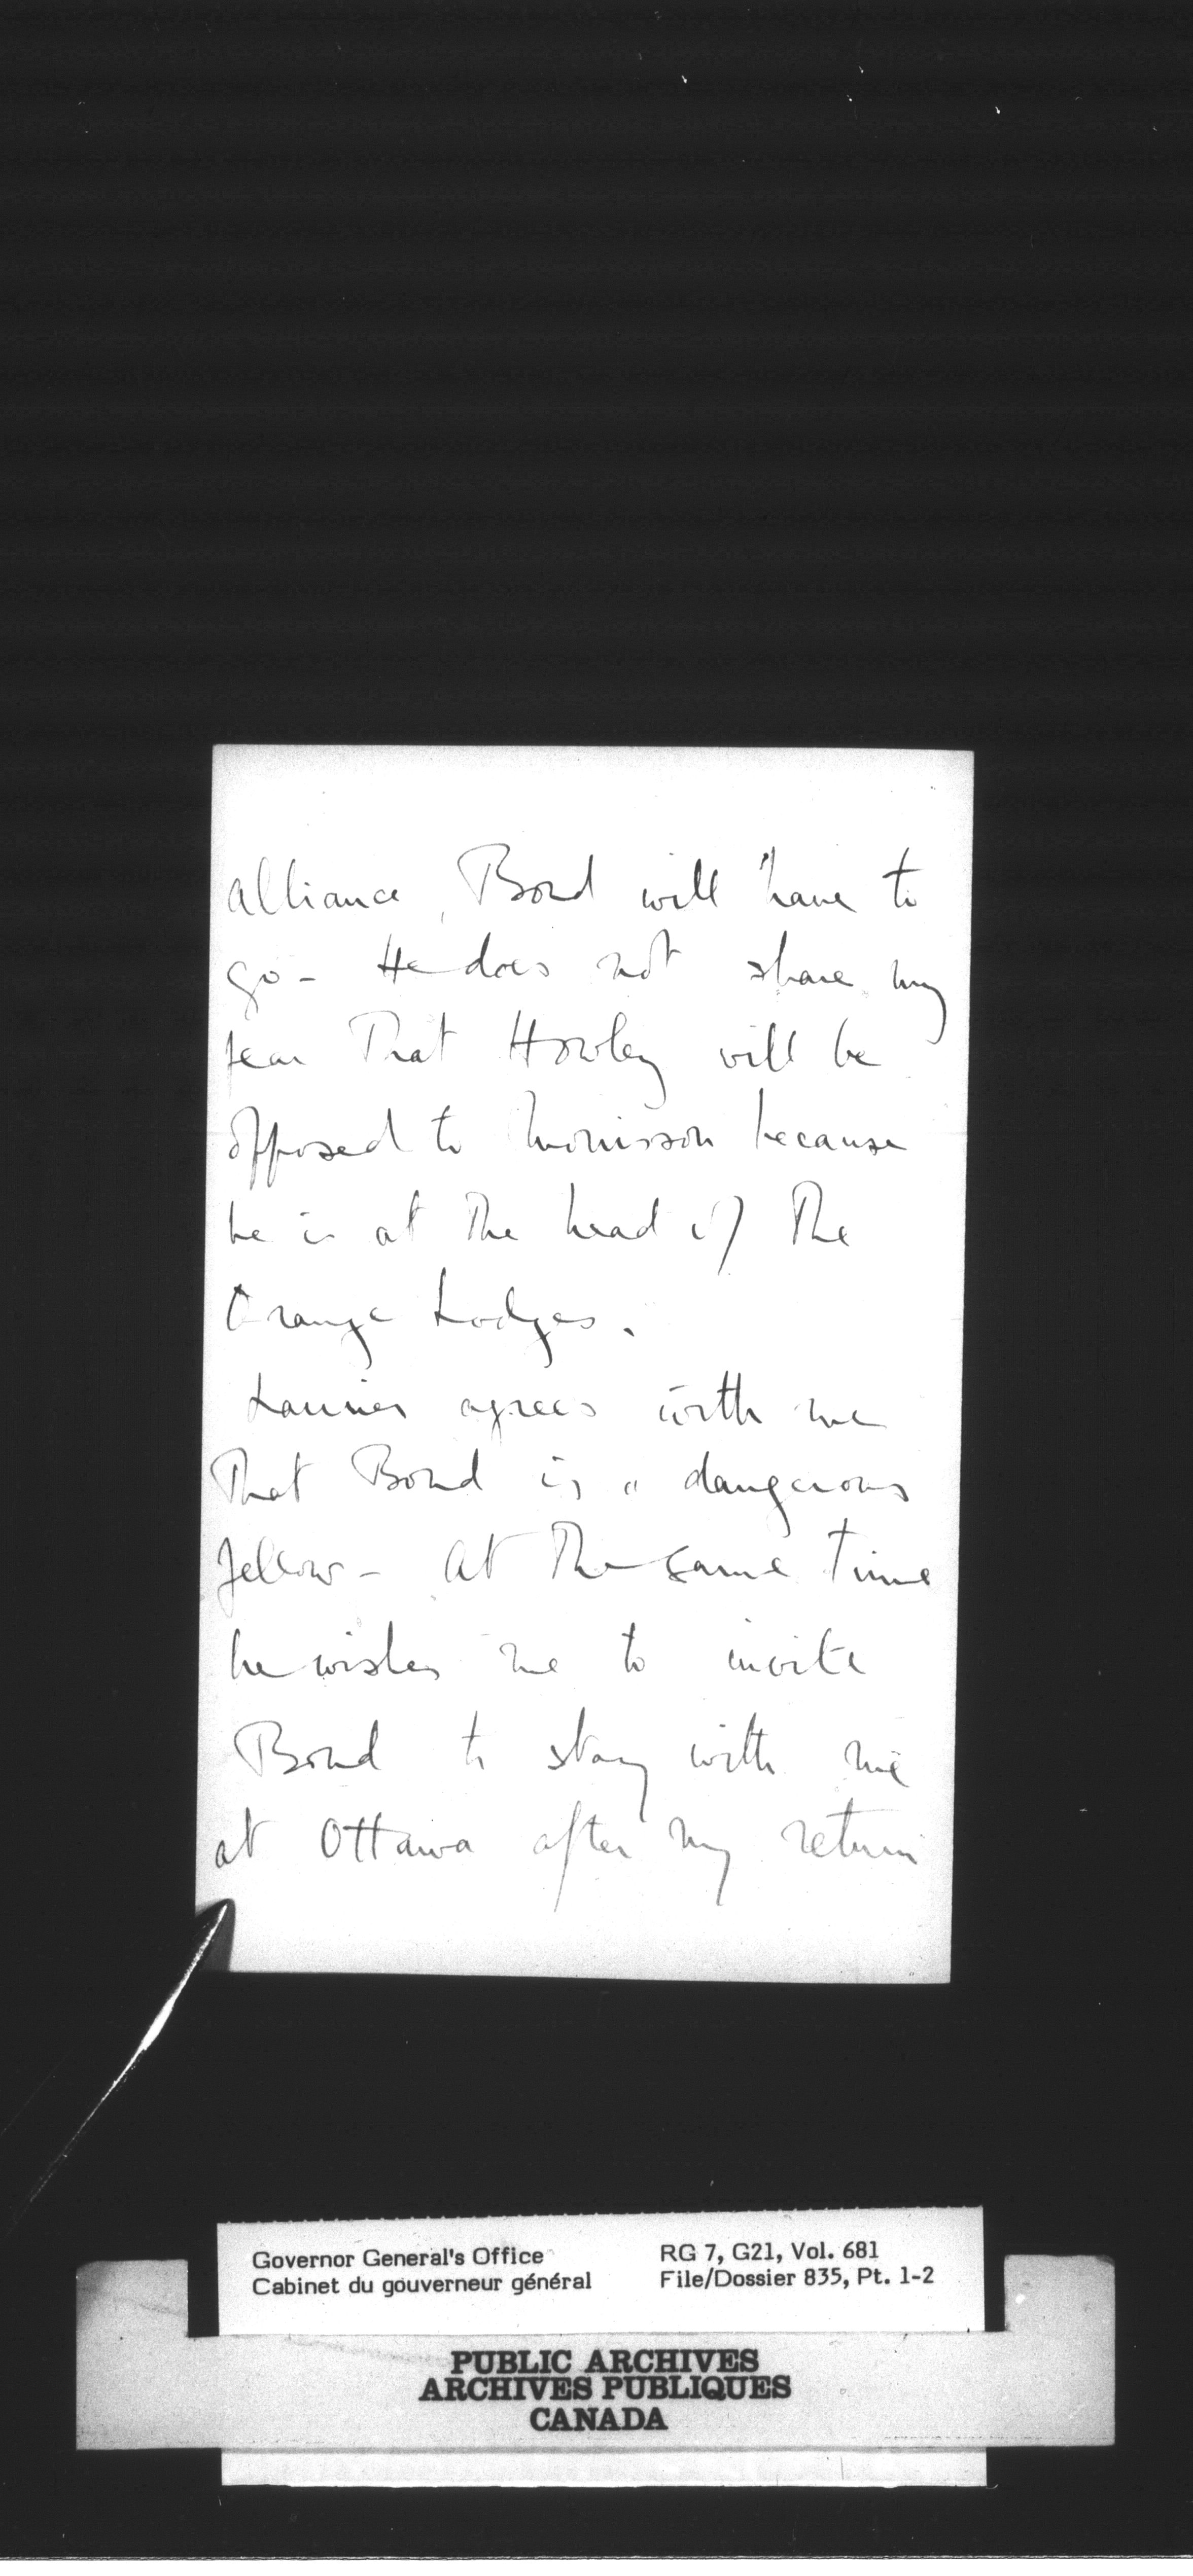 alliance, Bond will have to
go - He does not share my
fear that Howley will be
opposed to Morrisson because
he is at the head of the
Orange Lodges.
Laurier agrees with me
that Bond is a dangerous
fellow - at the same time
he wishes me to invite
Bond to stay with me
at Ottawa after my return
Governor General's Office
Cabinet du gouverneur général
RG 7, G21, Vol. 681
File/Dossier 835, Pt. 1-2
PUBLIC ARCHIVES
ARCHIVES PUBLIQUES
CANADA